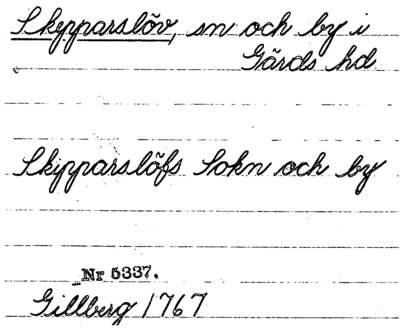 Skepparslöv, sn och by i
Gärds hd
Skipparslöfs Sokn och by
Nr 5337.
Gillberg 1767